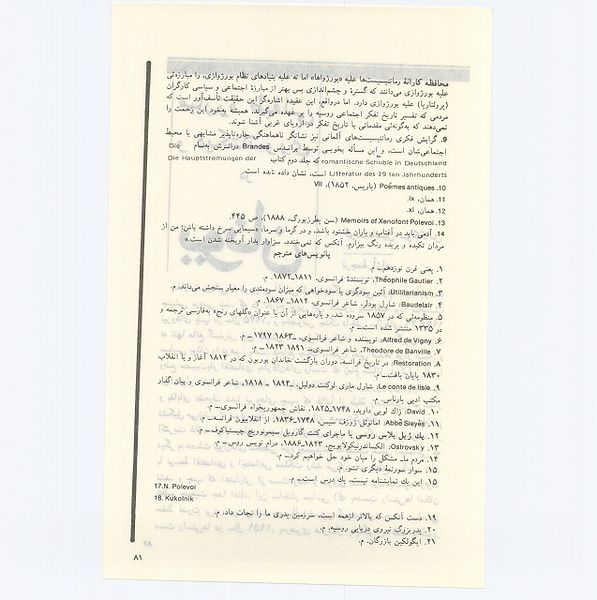 محافظه کارانهٔ رمانتیسیستها علیه «بورژواها» اما نه علیه بنیادهای نظام بورژوازی، را مبارزه‌ئی
علیه بورژوازی می‌دانند که گستره و چشم‌اندازی بس بهتر از مبارزهٔ اجتماعی و سیاسی کارگران
(پرولتاریا) علیه بورژوازی دارد. اما درواقع، این عقیده اشاره‌گر این حقیقت تأسف‌آور است که
مردمی که تفسیر تاریخ تفکر اجتماعی روسیه را بر عهده می‌گیرند، همیشه به‌خود این زحمت را
نمی‌دهند که به‌گونه‌ئی مقدماتی با تاریخ تفکر در اروپای غربی آشنا شوند.
۹. گرایش فکری رمانتیسیستهای آلمانی نیز نشانگر ناهماهنگی چاره‌ناپذیر مشابهی با محیط
اجتماعی‌شان است. و این مسأله بخوبی توسط براندس Brandes دراثرش به‌نام Die
romantische Schuble in Deutschland که جلد دوم کتاب Die Hauptstromungen der
Litteratur des 19 ten Jahrhunderts است، نشان داده شده است.
۱۰. Poémes antiques (پاریس، ۱۸۵۲)، VII
۱۱. همان، ix.
۱۲. همان، xi.
۱۳. Memoirs of Xenofont Polevoi (سن پطرزبورگ، ۱۸۸۸)، ص ۴۴۵.
۱۴. آدمی باید در آفتاب و باران خشنود باشد، و در گرما و سرما: «سیمایی سرخ داشته باش: من از
مردان تکیده و پریده رنگ بیزارم. آنکس که نمی‌خندد، سزاوار بدار آویخته شدن است.»
پانویس‌های مترجم
۱. یعنی قرن نوزدهم_ م.
۲. Théophile Gautier، نویسندهٔ فرانسوی، ۱۸۱۱_۱۸۷۲. م.
۳. Utilitarianism: آئین سودگری یا سودخواهی که میزان سودمندی را معیار سنجش می‌داند. م.
۴. Baudelair: شارل بودلر، شاعر فرانسوی، ۱۸۱۲_ ۱۸۶۷. م.
۵. منظومه‌ئی که در ۱۸۵۷ سروده شد، و پاره‌هایی از آن با عنوان «گلهای رنج» به‌فارسی ترجمه و
در ۱۳۳۵ منتشر شده است_ م.
۶. Alfred de Vigny: نویسنده و شاعر فرانسوی، ۱۸۶۳_ ۱۷۹۷ _م.
۷. Theodore de Banville، شاعر فرانسوی، ۱۸۹۱_ ۱۸۲۳ _م.
۸. Restoration: در تاریخ فرانسه، دوران بازگشت خاندان بوربون که در ۱۸۱۴ آغاز و با انقلاب
۱۸۳۰ پایان یافت_ م.
۹. Le conte de lisle: شارل ماری لوکنت دولیل، ۱۸۹۴_ ۱۸۱۸، شاعر فرانسوی و بنیان گذار
مکتب ادبی پارناس. م.
۱۰. David: ژاك لویی داوید، ۱۷۴۸_۱۸۲۵، نقاش جمهوریخواه فرانسوی_ م.
۱۱. Abbé Sieyès: امانوئل ژوزف سیس، ۱۷۴۸_۱۸۳۶، از انقلابیون فرانسه_ م.
۱۲. یك ژیل بلاس روسی یا ماجرای کنت گاورویل سیمونوریچ چیستیاکوف_ م.
۱۳. Ostrovsky: الکساندرنیکولایویچ، ۱۸۲۳_۱۸۸۶، درام نویس روس_ م.
۱۴. مردم ما_ مشکل را میان خود حل خواهیم کرد_ م.
۱۵. سوار سورتمهٔ دیگری نشو. م.
۱۵. این یك نمایشنامه نیست، یك درس است_ م.
17.N. Polevoi
18. Kukolnik
۱۹. دست آنکس که بالاتر ازهمه است، سرزمین پدری ما را نجات داد. م.
۲۰. پدربزرگ نیروی دریایی روسیه. م.
۲۱. ایگولکین بازرگان. م.
۸۱